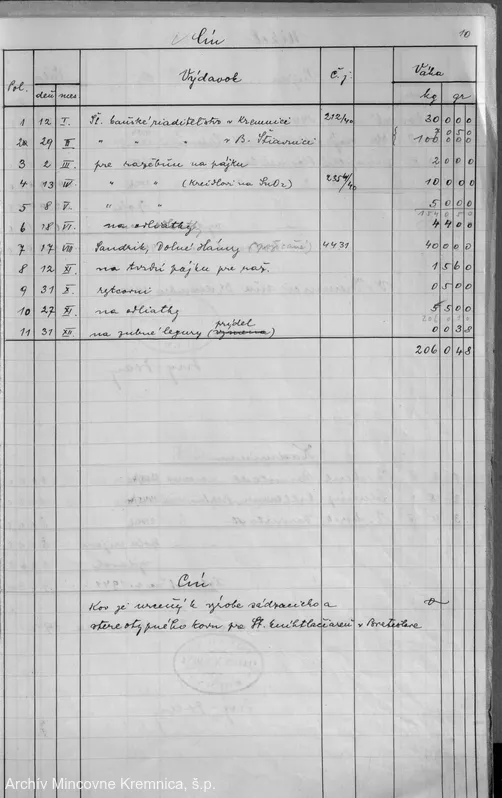 Cín 10
Pol. deň mes Výdavok Č. j. Váha
kg gr
1 12 I. Št. banské riaditeľstvo v Kremnici 212/40 30 000
2 29 II. " " " v B. Štiavnici 100 000
3 2 III. pre razebňu na pájku 2 000
4 13 IV. " " (Kreidlovi na SnO2) 2354/40 10 000
5 8 V. " " 5 000
6 18 VI. na odliatky 4 400
7 17 VII Sandrik, Dolné Hámry 4431 40 000
8 12 XI. na tvrdú pájku pre raž. 1 560
9 31 X. rytcovni 0 500
10 27 XI. na odliatky 5 500
11 31 XII. na zubné legury (prídel 0 038
206 048
Cín
Kov je určený k výrobe sádzacieho a
stereotypného kovu pre Št. kníhtlačiareň v Bratislave
Archív Mincovne Kremnica, š.p.